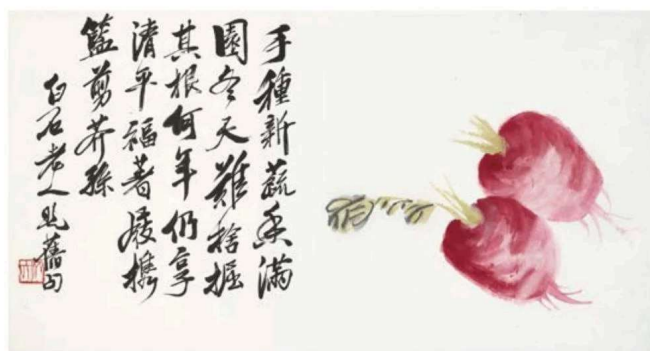 手種新蔬香滿
園冬天難捨掘
其根何年仍享
清平福著屐攜
籃剪芥孫
白石老人題舊句